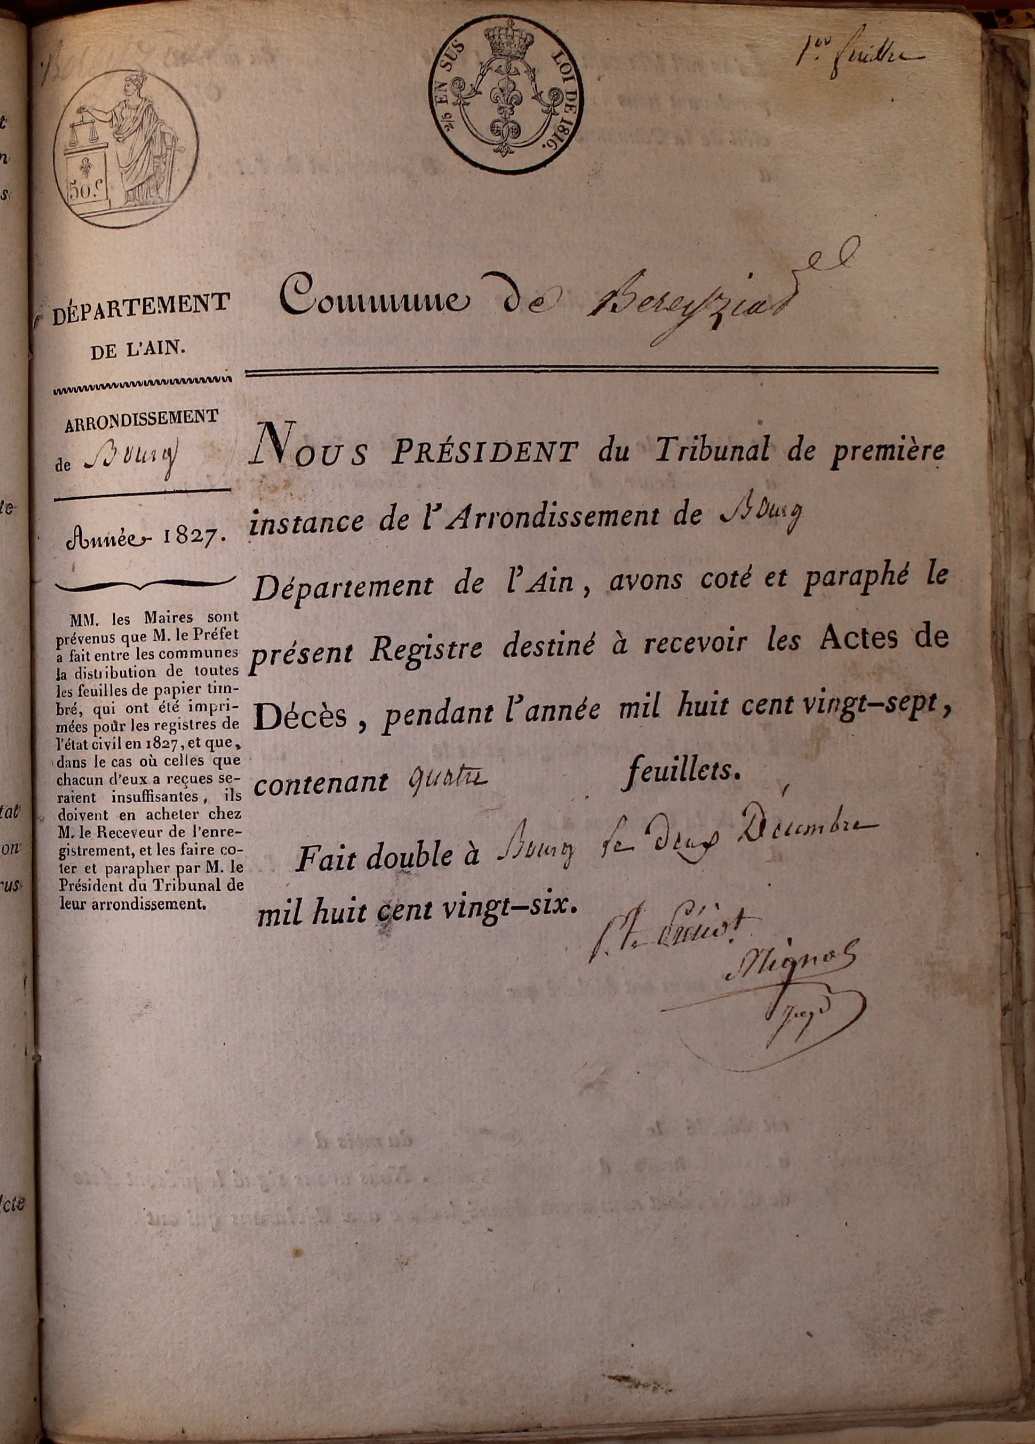 1er feuillet
2/5 EN SUS LOI DE 1816.
50 c
Commune de Bereyziad
DÉPARTEMENT
DE L'AIN.
ARRONDISSEMENT
de Bourg
Année 1827.
MM. les Maires sont
prévenus que M. le Préfet
a fait entre les communes
la distribution de toutes
les feuilles de papier tim-
bré, qui ont été impri-
mées pour les registres de
l'état civil en 1827, et que,
dans le cas où celles que
chacun d'eux a reçues se-
raient insuffisantes, ils
doivent en acheter chez
M. le Receveur de l'enre-
gistrement, et les faire co-
ter et parapher par M. le
Président du Tribunal de
leur arrondissement.
NOUS PRÉSIDENT du Tribunal de première
instance de l'Arrondissement de Bourg
Département de l'Ain, avons coté et paraphé le
présent Registre destiné à recevoir les Actes de
Décès, pendant l'année mil huit cent vingt-sept,
contenant quatre feuillets.
Fait double à Bourg le deux Décembre
mil huit cent vingt-six.